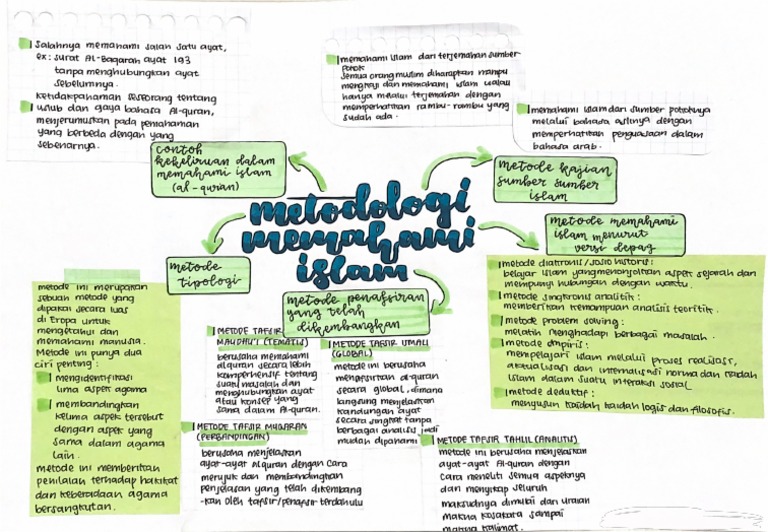 Salahnya memahami salah satu ayat,
ex: surat Al-Baqarah ayat 193
tanpa menghubungkan ayat
sebelumnya.
ketidakpahaman seseorang tentang
uslub dan gaya bahasa Al-quran,
menjerumuskan pada pemahaman
yang berbeda dengan yang
sebenarnya.
contoh
kekeliruan dalam
memahami islam
(al-qur'an)
memahami islam dari terjemahan sumber
pokok
semua orang muslim diharapkan mampu
mengkaji dan memahami islam walau
hanya melalui terjemahan dengan
memperhatikan rambu-rambu yang
sudah ada.
memahami islam dari sumber pokoknya
melalui bahasa aslinya dengan
memperhatikan penguasaan dalam
bahasa arab.
metode kajian
sumber sumber
islam
metodologi
memahami
islam
metode memahami
islam menurut
versi depag
metode diakronis/sosio historis:
belajar islam yang menonjolkan aspek sejarah dan
mempunyi hubungan dengan waktu.
metode singkronis analitik:
memberikan kemampuan analisis teoritik.
metode problem solving:
melatih menghadapi berbagai masalah.
metode empiris:
mempelajari islam melalui proses realisasi,
aktualisasi dan internalisasi norma dan kaidah
islam dalam suatu interaksi sosial
metode deduktif:
menyusun kaidah kaidah logis dan filosofis.
metode
tipologi
metode ini merupakan
sebuah metode yang
dipakai secara luas
di Eropa untuk
mengetahui dan
memahami manusia.
Metode ini punya dua
ciri penting:
mengidentifikasi
lima aspek agama
membandingkan
kelima aspek tersebut
dengan aspek yang
sama dalam agama
lain.
metode ini memberikan
penilaian terhadap hakikat
dan keberadaan agama
bersangkutan.
metode penafsiran
yang telah
dikembangkan
METODE TAFSIR
MAUDHU'I (TEMATIS)
berusaha memahami
alquran secara lebih
komperhensif tentang
suatu masalah dan
menghubungkan ayat
atau konsep yang
sama dalam Al-quran.
METODE TAFSIR IJMALI
(GLOBAL)
metode ini berusaha
menafsirkan al-quran
secara global, dimana
langsung menjelaskan
kandungan ayat
secara singkat tanpa
berbagai analisis, jadi
mudah dipahami
METODE TAFSIR MUQARAN
(PERBANDINGAN)
berusaha menjelaskan
ayat-ayat Alquran dengan cara
merujuk dan membandingkan
penjelasan yang telah dikembang
-kan oleh tafsir/penafsir terdahulu
METODE TAFSIR TAHLIL (ANALITIS)
metode ini berusaha menjelaskan
ayat-ayat Al-quran dengan
cara meneliti semua aspeknya
dan menyikap seluruh
maksudnya dimulai dari uraian
makna kosakata sampai
makna kalimat.